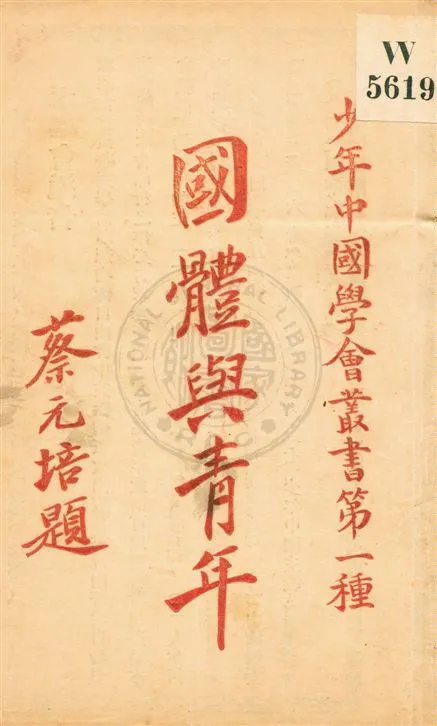 W
5619
少年中國學會叢書第一種
國體與青年
蔡元培題
NATIONAL CENTRAL LIBRARY